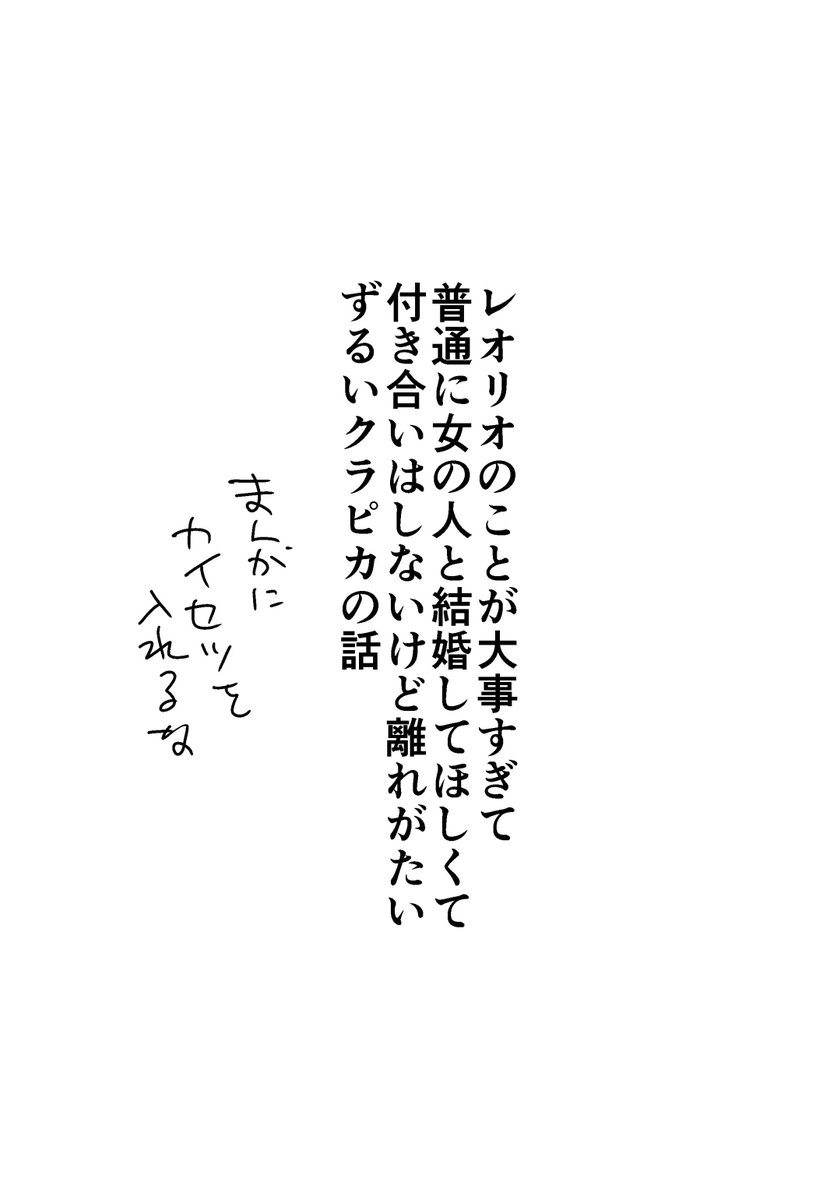 レオリオのことが大事すぎて
普通に女の人と結婚してほしくて
付き合いはしないけど離れがたい
ずるいクラピカの話
まんがに
カイセツを
入れるな